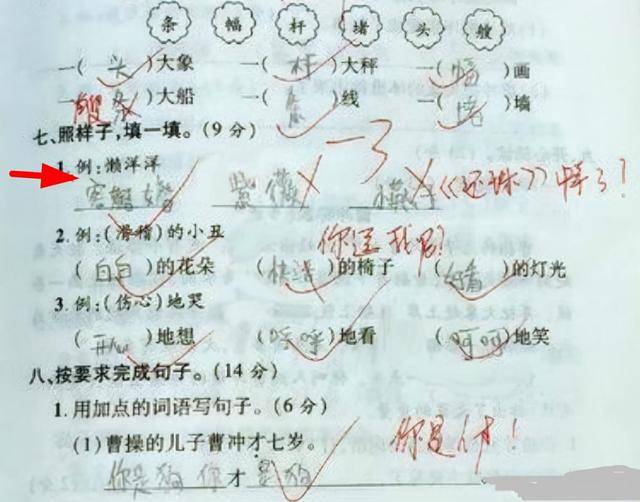 条 幅 杆 堵 头 艘
一(头)大象 一(杆)大秤 一(幅)画
一(条)大船 艘 一( )线 一(堵)墙
七、照样子,填一填。(9 分) 一3
1. 例:懒洋洋
容嬷嬷 紫薇 《还珠》 了!
2. 例:(滑稽)的小丑 你逗我
(白白)的花朵 ( )的椅子 (好看)的灯光
3. 例:(伤心)地哭
( )地想 (呼呼)地看 (呵呵)地笑
八、按要求完成句子。(14 分)
1. 用加点的词语写句子。(6 分)
(1) 曹操的儿子曹冲才七岁。 你是人才!
你是狗 你才是狗